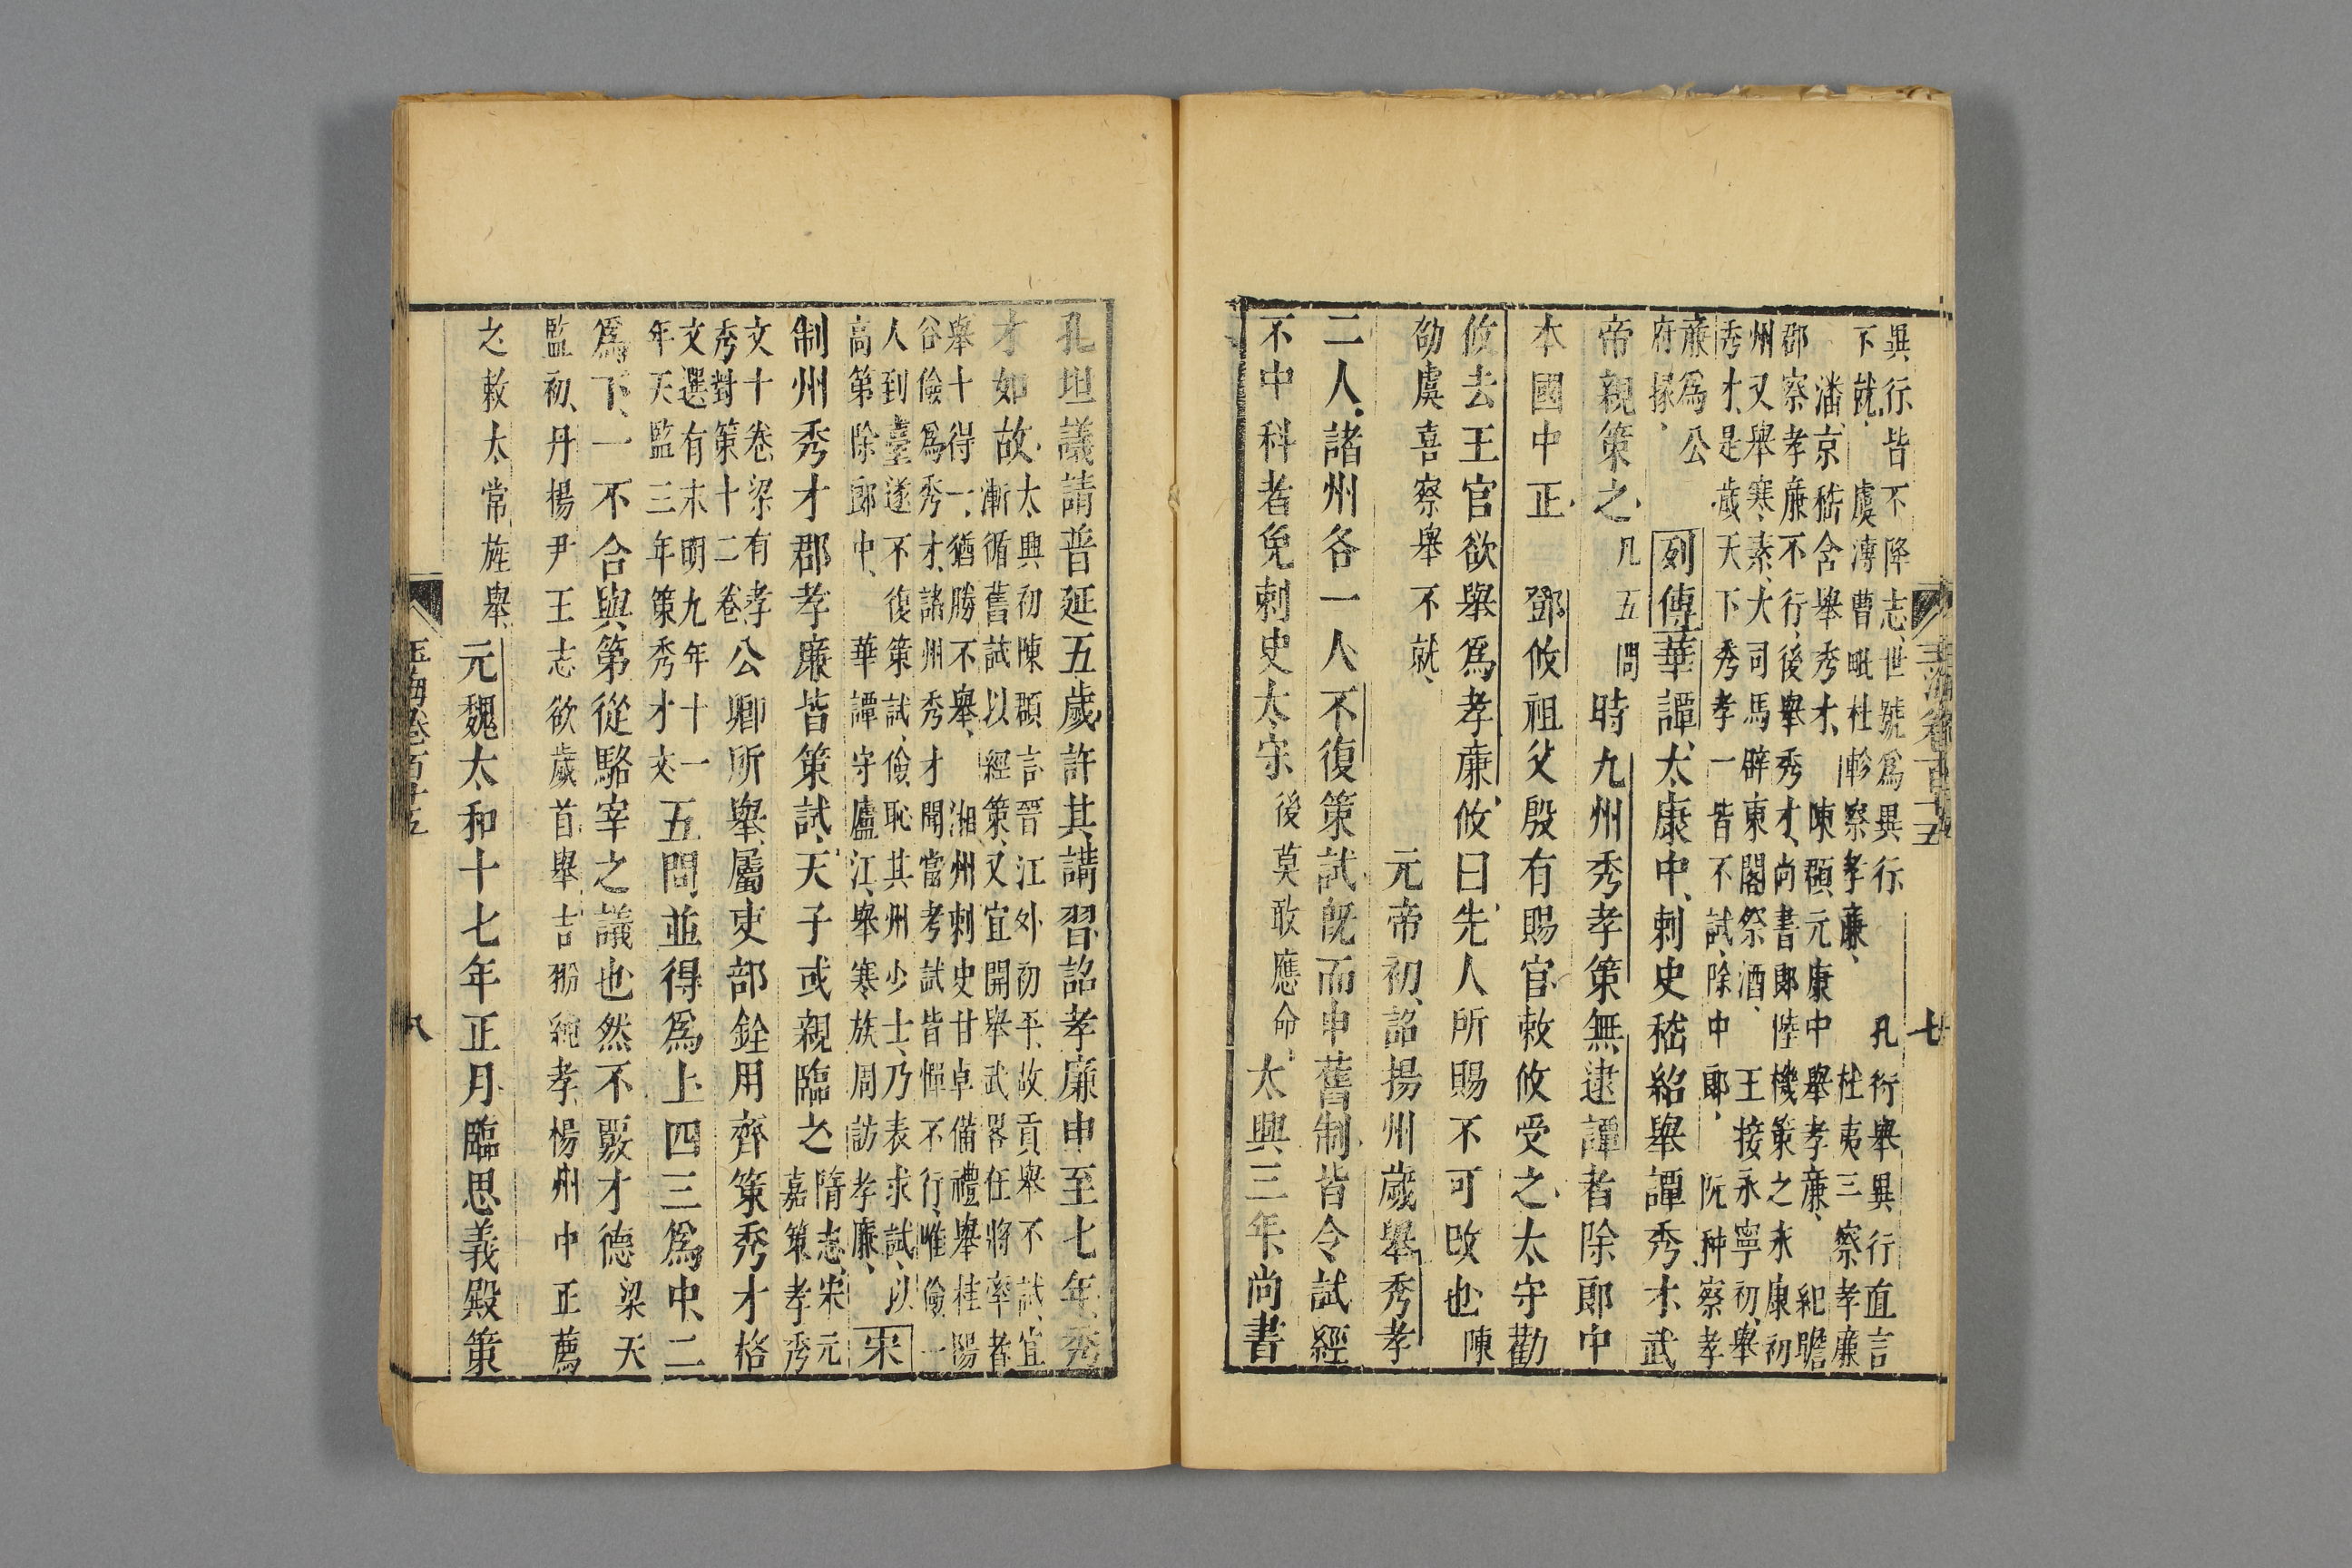 玉海卷百十五 七
異行皆不降志世號爲異行 孔衍舉異行直言
下就 虞溥曹毗杜軫察孝廉 杜夷三察孝廉
潘京嵇含舉秀才 陳頵元康中舉孝廉 紀瞻
郡察孝廉不行後舉秀才尚書郎陸機策之永康初
州又舉寒素大司馬辟東閣祭酒 王接永寧初舉
秀才是歲天下秀孝一皆不試除中郎 阮种察孝
廉爲公
府掾
列傳華譚太康中刺史嵇紹舉譚秀才武
帝親策之 凡五問 時九州秀孝策無逮譚者除郎中
本國中正 鄧攸祖父殷有賜官敕攸受之太守勸
攸去王官欲舉爲孝廉攸曰先人所賜不可改也 陳
劭虞喜察舉不就 元帝初詔揚州歲舉秀孝
二人諸州各一人不復策試旣而申舊制皆令試經
不中科者免刺史太守 後莫敢應命 太興三年尚書
孔坦議請普延五歲許其講習詔孝廉申至七年秀
才如故
太興初陳頵言晉江外初平故貢舉不試宜
漸循舊試以經策又宜開舉武畧任將率者
舉十得一猶勝不舉 湘州刺史甘卓備禮舉桂陽
谷儉爲秀才諸州秀才聞當考試皆憚不行唯儉一
人到臺遂不復策試儉恥其州少士乃表求試以
高第除郎中 華譚守廬江舉寒族周訪孝廉
宋
制州秀才郡孝廉皆策試天子或親臨之
隋志宋元
嘉策孝秀
文十卷梁有孝
秀對策十二卷
公卿所舉屬吏部銓用齊策秀才格
文選有永明九年十一
年天監三年策秀才文
五問並得爲上四三爲中二
爲下一不合與第從駱宰之議也然不覈才德 梁天
監初丹楊尹王志欲歲首舉吉翂純孝楊州中正薦
之敕太常旌舉 元魏太和十七年正月臨思義殿策
玉海卷百十五 八